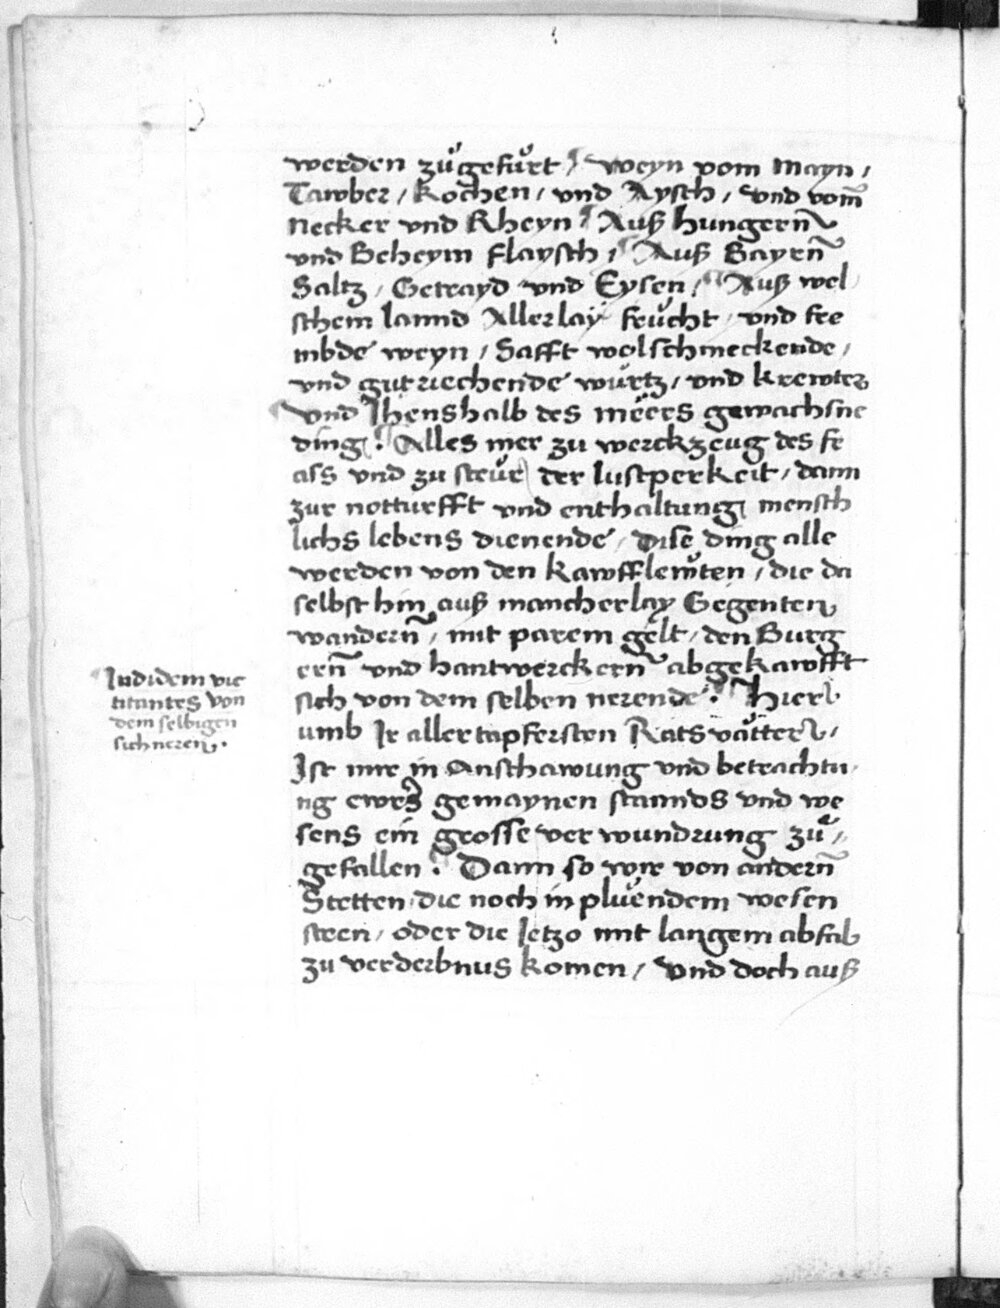 werden zůgefůrt / weyn vom Mayn /
Tawber / Kochen / vnd Aysch / vnd vom̄
Necker vnd Rheyn / Auß hungern̄
vnd Beheym flaysch / Auß Bayrn̄
Saltz / Getrayd vnd Eysen / Auß wel
schem lannd Allerlaÿ feůcht / vnd fre
mbde weyn / Safft wolschmeckende /
vnd gut riechende wůrtz / vnd krewter
vnd Jhenshalb des meers gewachsne
ding / Alles mer zu werckzeug des fr
ass vnd zu steůr der lustperkeit / dann
zur notturfft vnd enthaltung mensch
lichs lebens dienende / Dise ding alle
werden von den Kawfflewten / die da
selbst hin auß mancherlay Gegenten
wandern̄ / mit parem gelt / den Burg
ern̄ vnd hantwerckern̄ abgekawfft
sich von dem selben nerende. Hier
umb Ir aller tapfersten Rats våtter /
Ist mir in Anschawung vnd betrachtu
ng ewrs gemaynen stannds vnd we
sens ein grosse verwundrung zů /
gefallen. Dann so wir von andern̄
Stetten die noch in plůendem wesen
steen / oder die Jetzo mit langem abfal
zu verderbnus komen / vnd doch auß
Indidem vic
titantes von
dem selbigen
sich neren.